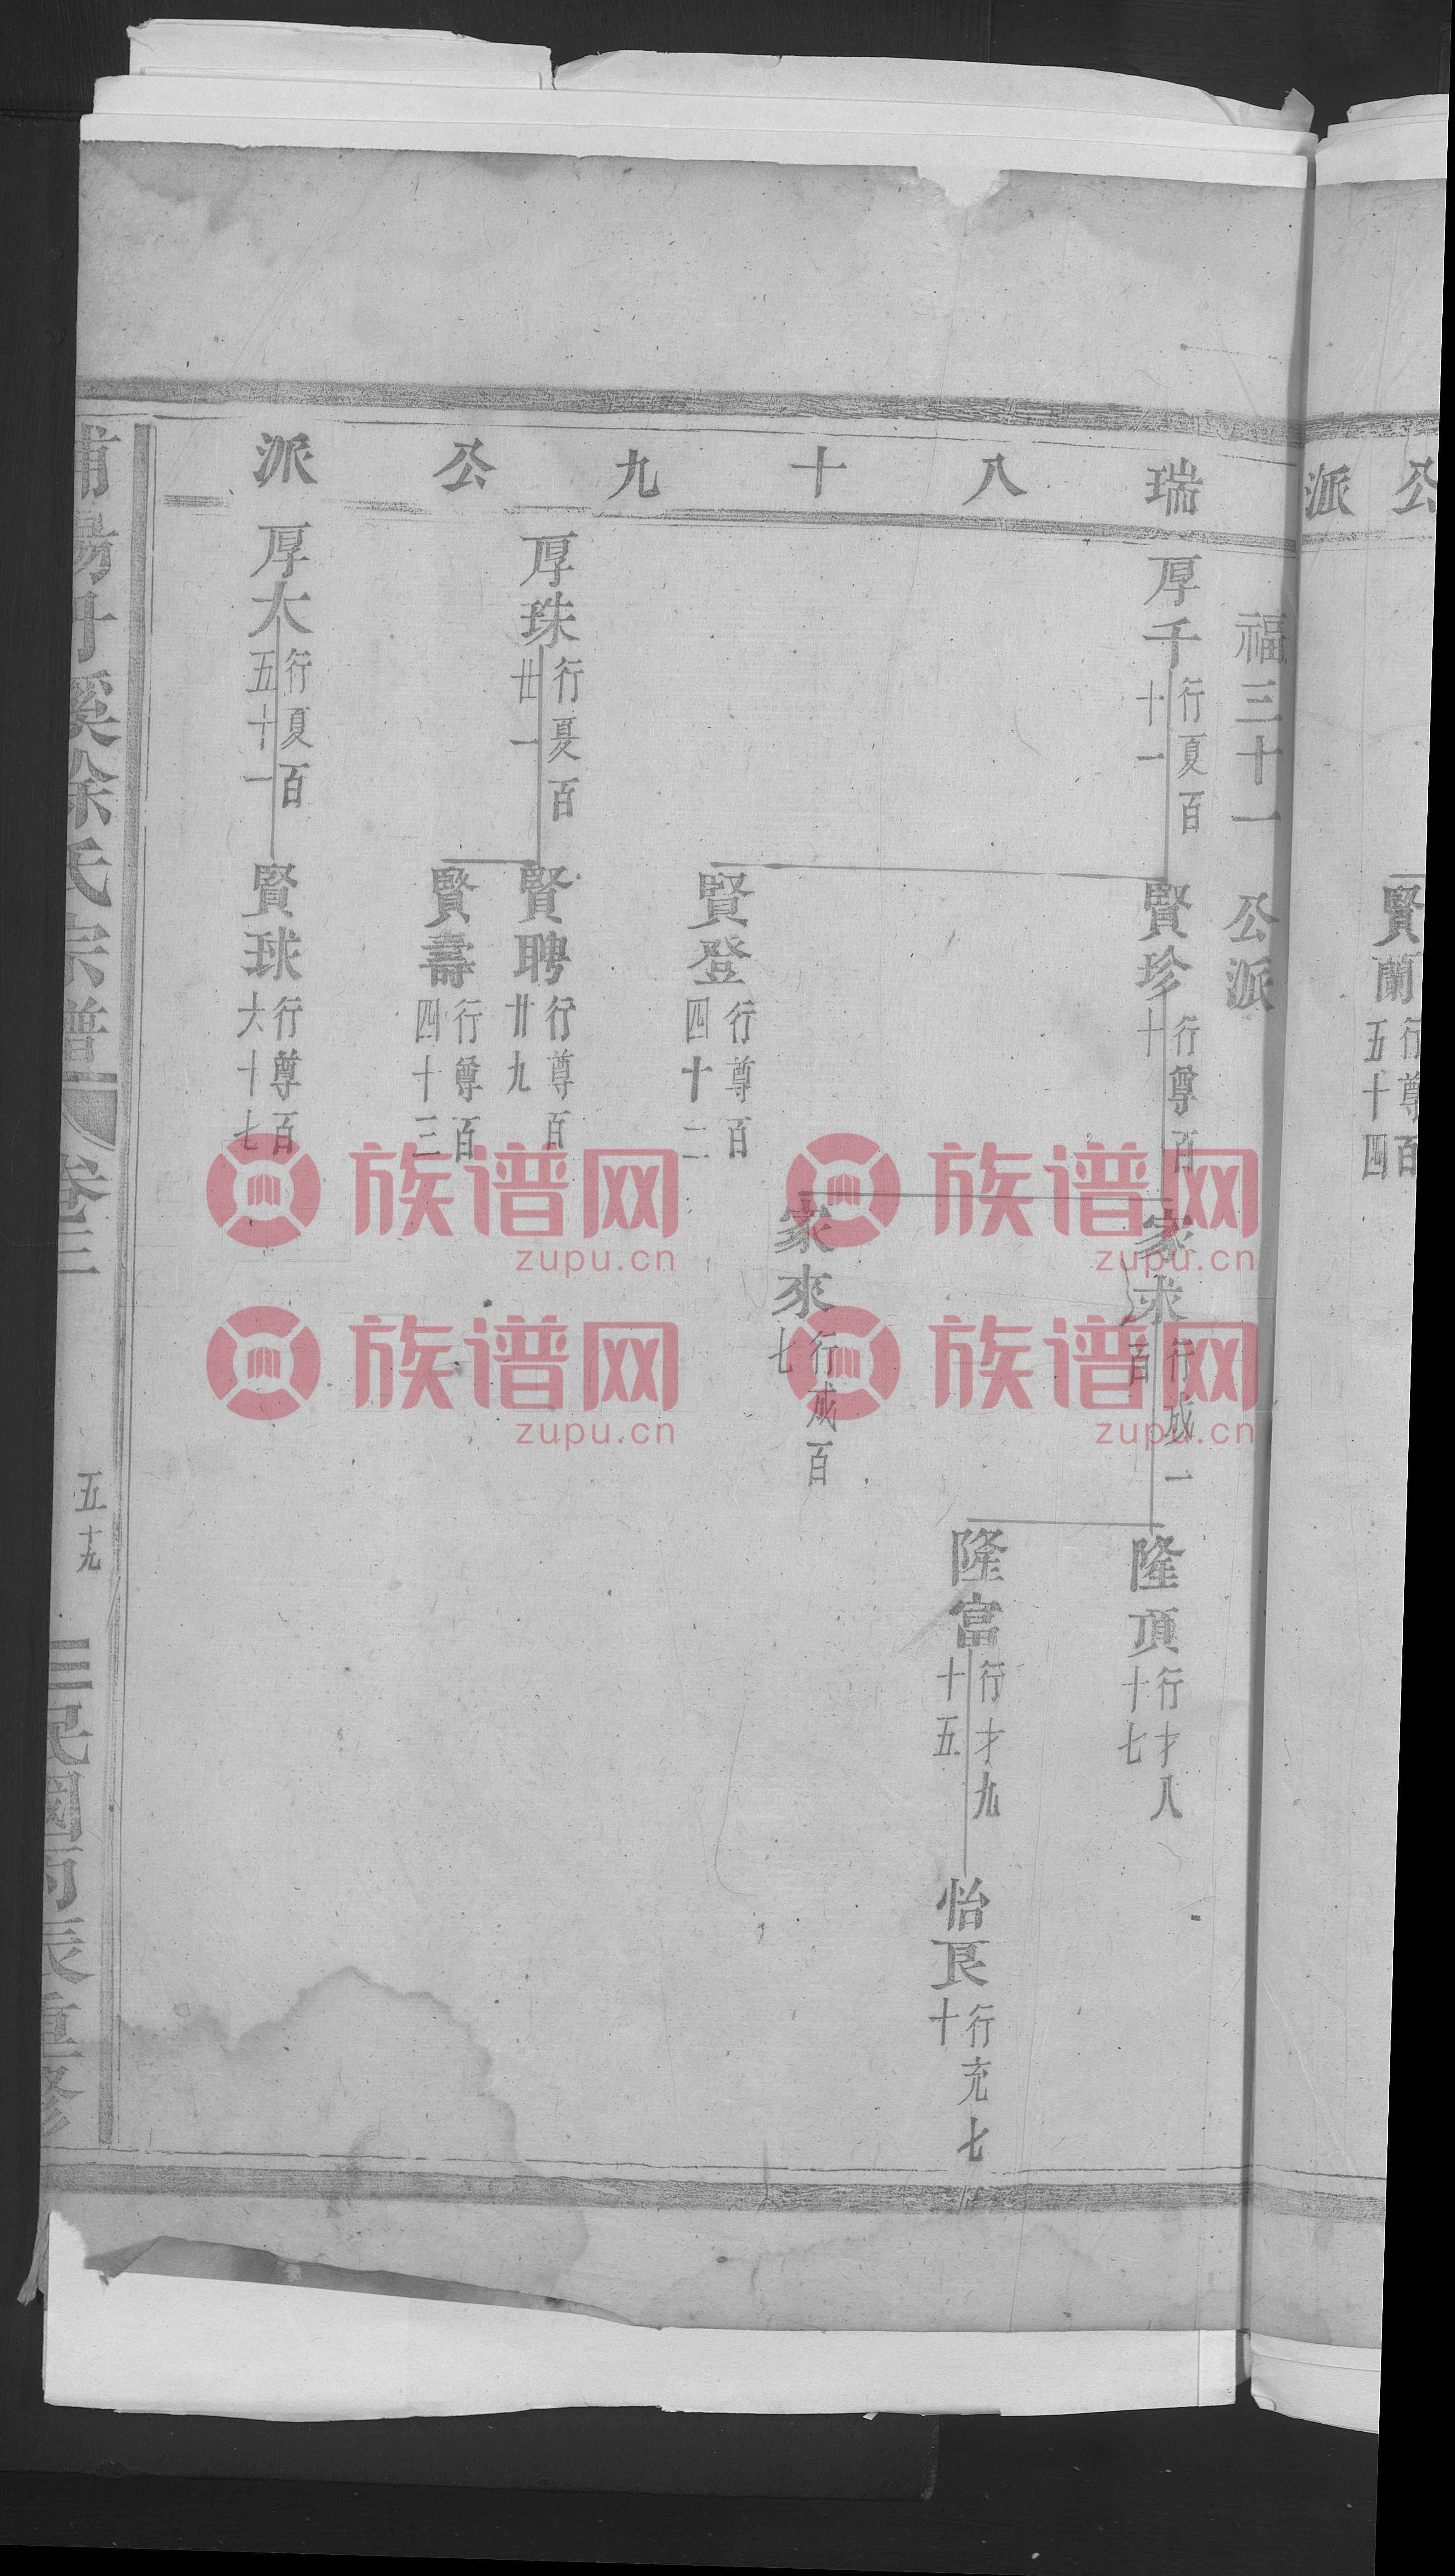 公
派
賢蘭行尊百五十四
瑞八十九公派
福三十一公派
厚千行夏百十一
賢珍行尊百十
家求行成一百
隆頂行才八十七
隆富行才九十五
怡艮行充七十
家來行成百七
賢登行尊百四十二
厚珠行夏百廿一
賢聘行尊百廿九
賢壽行尊百四十三
厚大行夏百五十一
賢球行尊百六十七
浦陽丹溪徐氏宗譜
卷三
五十九
民國丙辰重修
族谱网
zupu.cn
族谱网
zupu.cn
族谱网
zupu.cn
族谱网
zupu.cn